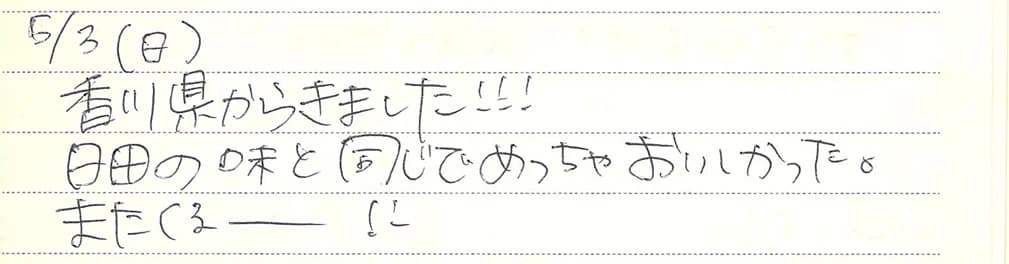 5/3(日)
香川県からきました!!!
日田の味と同じでめっちゃおいしかった。
またくるー!!